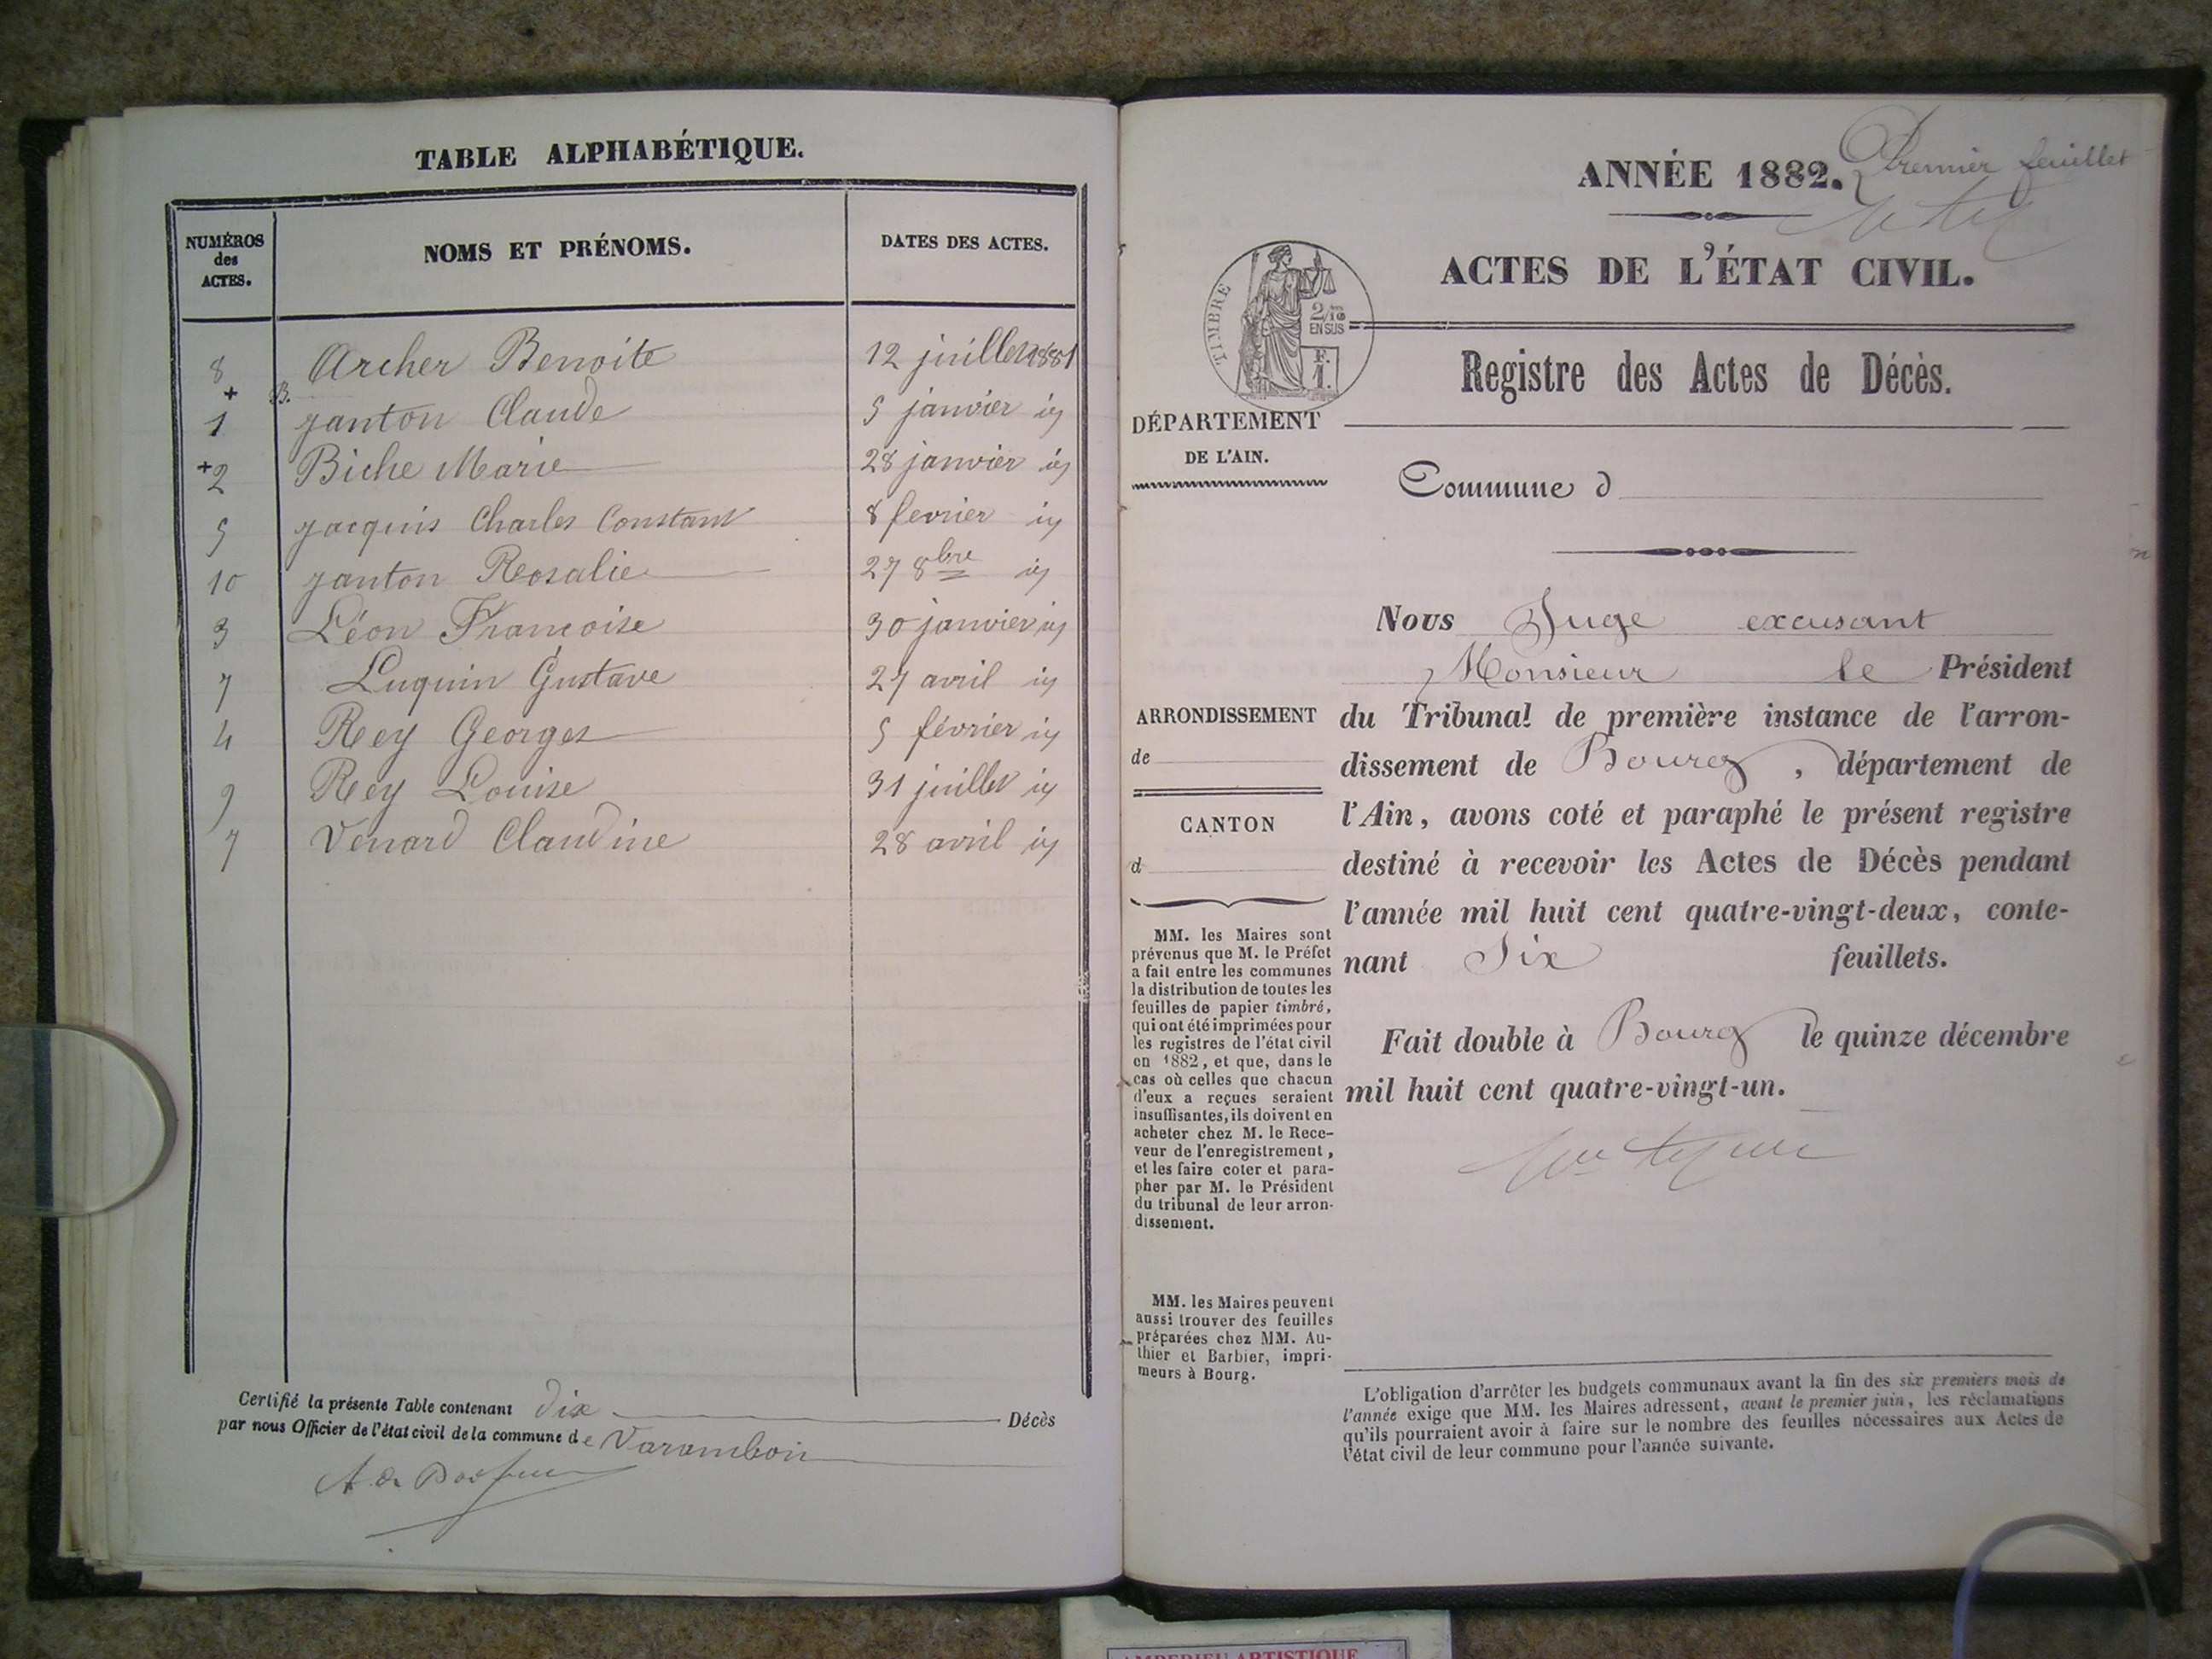 TABLE ALPHABÉTIQUE.
NUMÉROS des ACTES.
NOMS ET PRÉNOMS.
DATES DES ACTES.
8 Archer Benoite 12 juillet 1881
+ B.
1 Janton Claude 5 janvier id
+2 Biche Marie 28 janvier id
5 Jacquis Charles Constant 8 fevrier id
10 Janton Rosalie 27 8bre id
3 Léon Francoise 30 janvier id
7 Luquin Gustave 27 avril id
4 Rey Georges 5 février id
9 Rey Louise 31 juillet id
7 Venard Claudine 28 avril id
Certifié la présente Table contenant dix Décès
par nous Officier de l'état civil de la commune de Varambon
ANNÉE 1882. Premier feuillet
ACTES DE L'ÉTAT CIVIL.
TIMBRE
2/10
EN SUS
F.
1.
Registre des Actes de Décès.
DÉPARTEMENT
DE L'AIN.
Commune d
Nous Juge excusant
Monsieur le Président
du Tribunal de première instance de l'arron-
dissement de Bourg, département de
l'Ain, avons coté et paraphé le présent registre
destiné à recevoir les Actes de Décès pendant
l'année mil huit cent quatre-vingt-deux, conte-
nant Six feuillets.
Fait double à Bourg le quinze décembre
mil huit cent quatre-vingt-un.
ARRONDISSEMENT
de
CANTON
d
MM. les Maires sont
prévenus que M. le Préfet
a fait entre les communes
la distribution de toutes les
feuilles de papier timbré,
qui ont été imprimées pour
les registres de l'état civil
en 1882, et que, dans le
cas où celles que chacun
d'eux a reçues seraient
insuffisantes, ils doivent en
acheter chez M. le Rece-
veur de l'enregistrement,
et les faire coter et para-
pher par M. le Président
du tribunal de leur arron-
dissement.
MM. les Maires peuvent
aussi trouver des feuilles
préparées chez MM. Au-
thier et Barbier, impri-
meurs à Bourg.
L'obligation d'arrêter les budgets communaux avant la fin des six premiers mois de
l'année exige que MM. les Maires adressent, avant le premier juin, les réclamations
qu'ils pourraient avoir à faire sur le nombre des feuilles nécessaires aux Actes de
l'état civil de leur commune pour l'année suivante.
AMPERIEU ARTISTIQUE